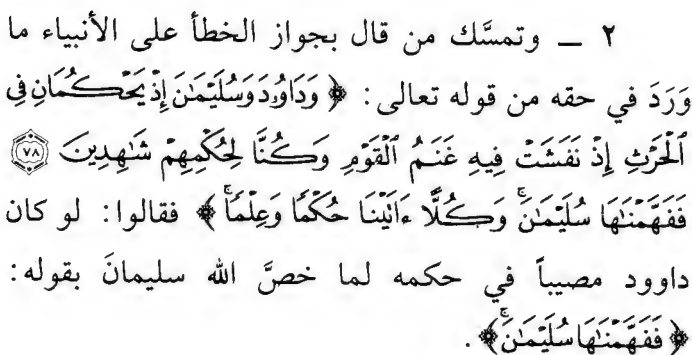 ٢ ــ وتمسَّك من قال بجواز الخطأ على الأنبياء ما
وَرَدَ في حقه من قوله تعالى: ﴿ وَدَاوُۥدَ وَسُلَيْمَٰنَ إِذْ يَحْكُمَانِ فِي
ٱلْحَرْثِ إِذْ نَفَشَتْ فِيهِ غَنَمُ ٱلْقَوْمِ وَكُنَّا لِحُكْمِهِمْ شَٰهِدِينَ ٧٨
فَفَهَّمْنَٰهَا سُلَيْمَٰنَۚ وَكُلًّا ءَاتَيْنَا حُكْمًا وَعِلْمًاۚ ﴾ فقالوا: لو كان
داوود مصيباً في حكمه لما خصَّ الله سليمانَ بقوله:
﴿ فَفَهَّمْنَٰهَا سُلَيْمَٰنَۚ ﴾.